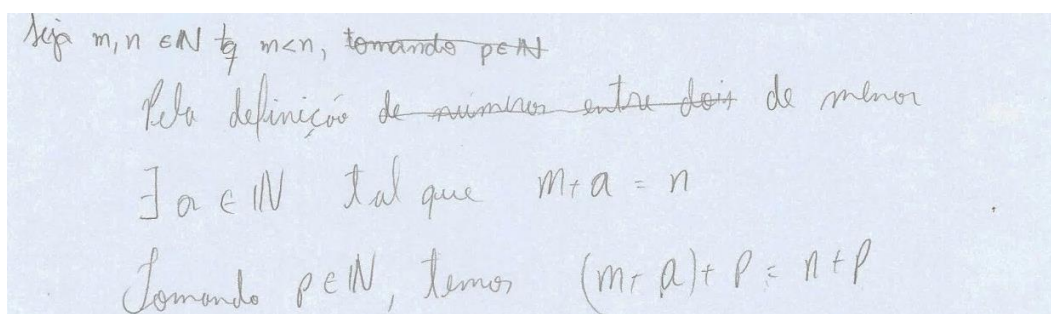 Seja m, n ∈ ℕ tq m<n, tomando p∈ℕ
Pela definição de números entre dois de menor
∃ a ∈ ℕ tal que m+a = n
Tomando p∈ℕ, temos (m+a)+p = n+p